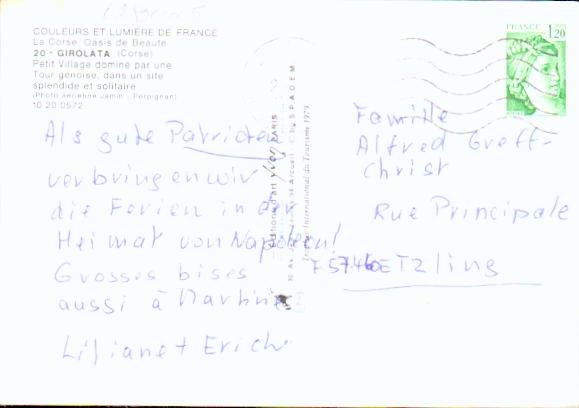 COULEURS ET LUMIÈRE DE FRANCE
La Corse, Oasis de Beauté
20 - GIROLATA (Corse)
Petit Village dominé par une
Tour génoise, dans un site
splendide et solitaire
(Photo aérienne Jamin - Perpignan)
10 20 0572
Als gute Patrioten
verbringen wir
die Ferien in der
Heimat von Napoleon!
Grosses bises
aussi à Martine
Liliane + Erich
Editions d'art yvon PARIS
Arcueil © by S.P.A.D.E.M.
International du Tourisme 1979
FRANCE 1,20
Famille
Alfred Greff-
Christ
Rue Principale
Etzling